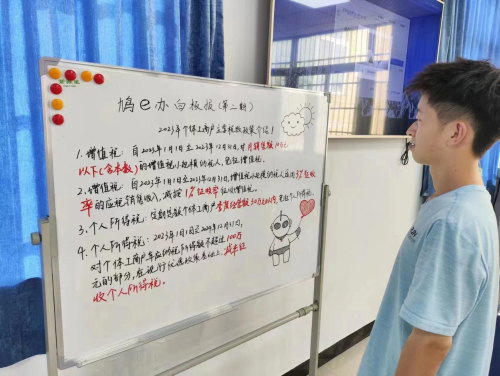 鸠e办白板报(第二期)
2023年个体工商户主要税收政策介绍!
1. 增值税:自2023年1月1日至2023年12月31日,对月销售额10万元
以下(含本数)的增值税小规模纳税人,免征增值税。
2. 增值税:自2023年1月1日至2023年12月31日,增值税小规模纳税人适用3%征收
率的应税销售收入,减按1%征收率征收增值税。
3. 个人所得税:定期定额个体工商户季度经营额30万元以内,免征个人所得税。
4. 个人所得税:2023年1月1日至2024年12月31日,
对个体工商户年应纳税所得额不超过100万
元的部分,在现行优惠政策基础上,减半征
收个人所得税。